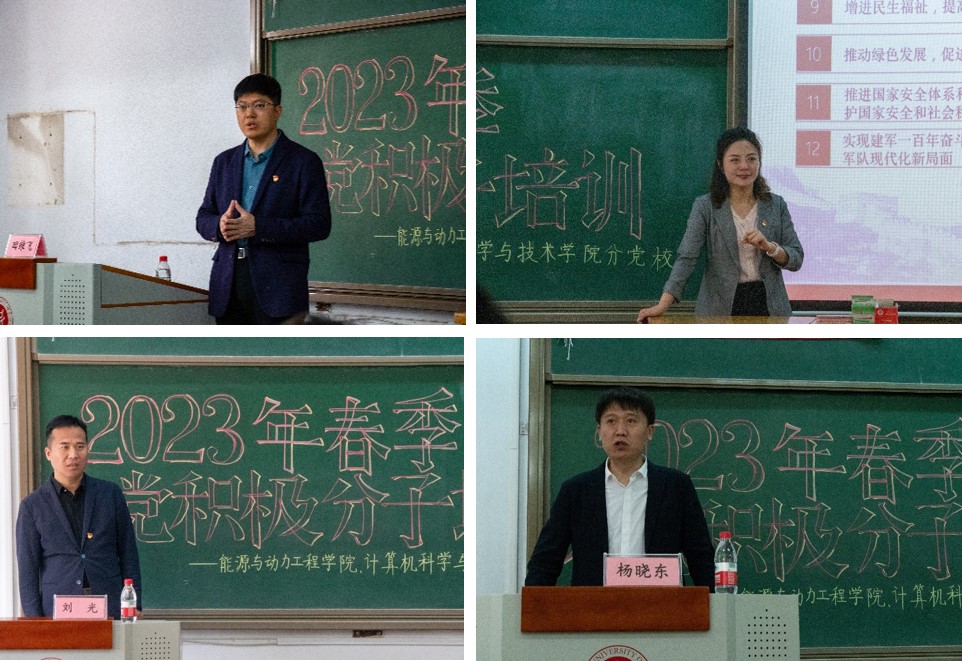 2023年
党积极
——能源与动力工
季
培训
学与技术学院分党校
9 增进民生福祉，提高
10 推动绿色发展，促进
11 推进国家安全体系和
护国家安全和社会稳
12 实现建军一百年奋斗
军队现代化新局面
2023年春季
党积极分子
——能源与动力工程学院、计算机科学与
刘 光
2023年春季
积极分子
与动力工程学院、计算机科
杨晓东
UNIVERSITY OF